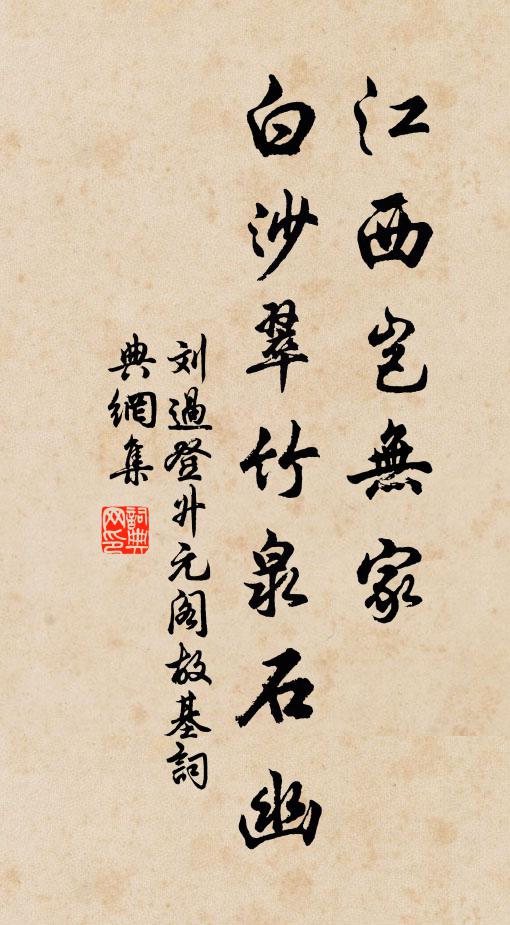 江西岂無家
白沙翠竹泉石幽
刘過登升元阁故基詞
典網集
詞典
网印